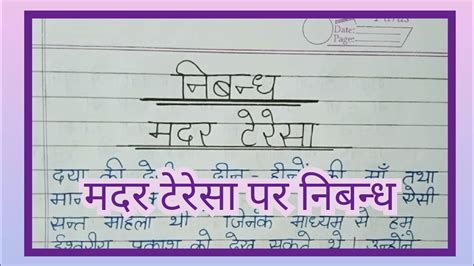 Date:
Page:
निबन्ध
मदर टेरेसा
दया की दीन - हीनों की माँ तथा
मदर टेरेसा पर निबन्ध
सन्त महिला थीं जिनके माध्यम से हम
ईश्वरीय प्रकाश को देख सकते थे। उन्होंने